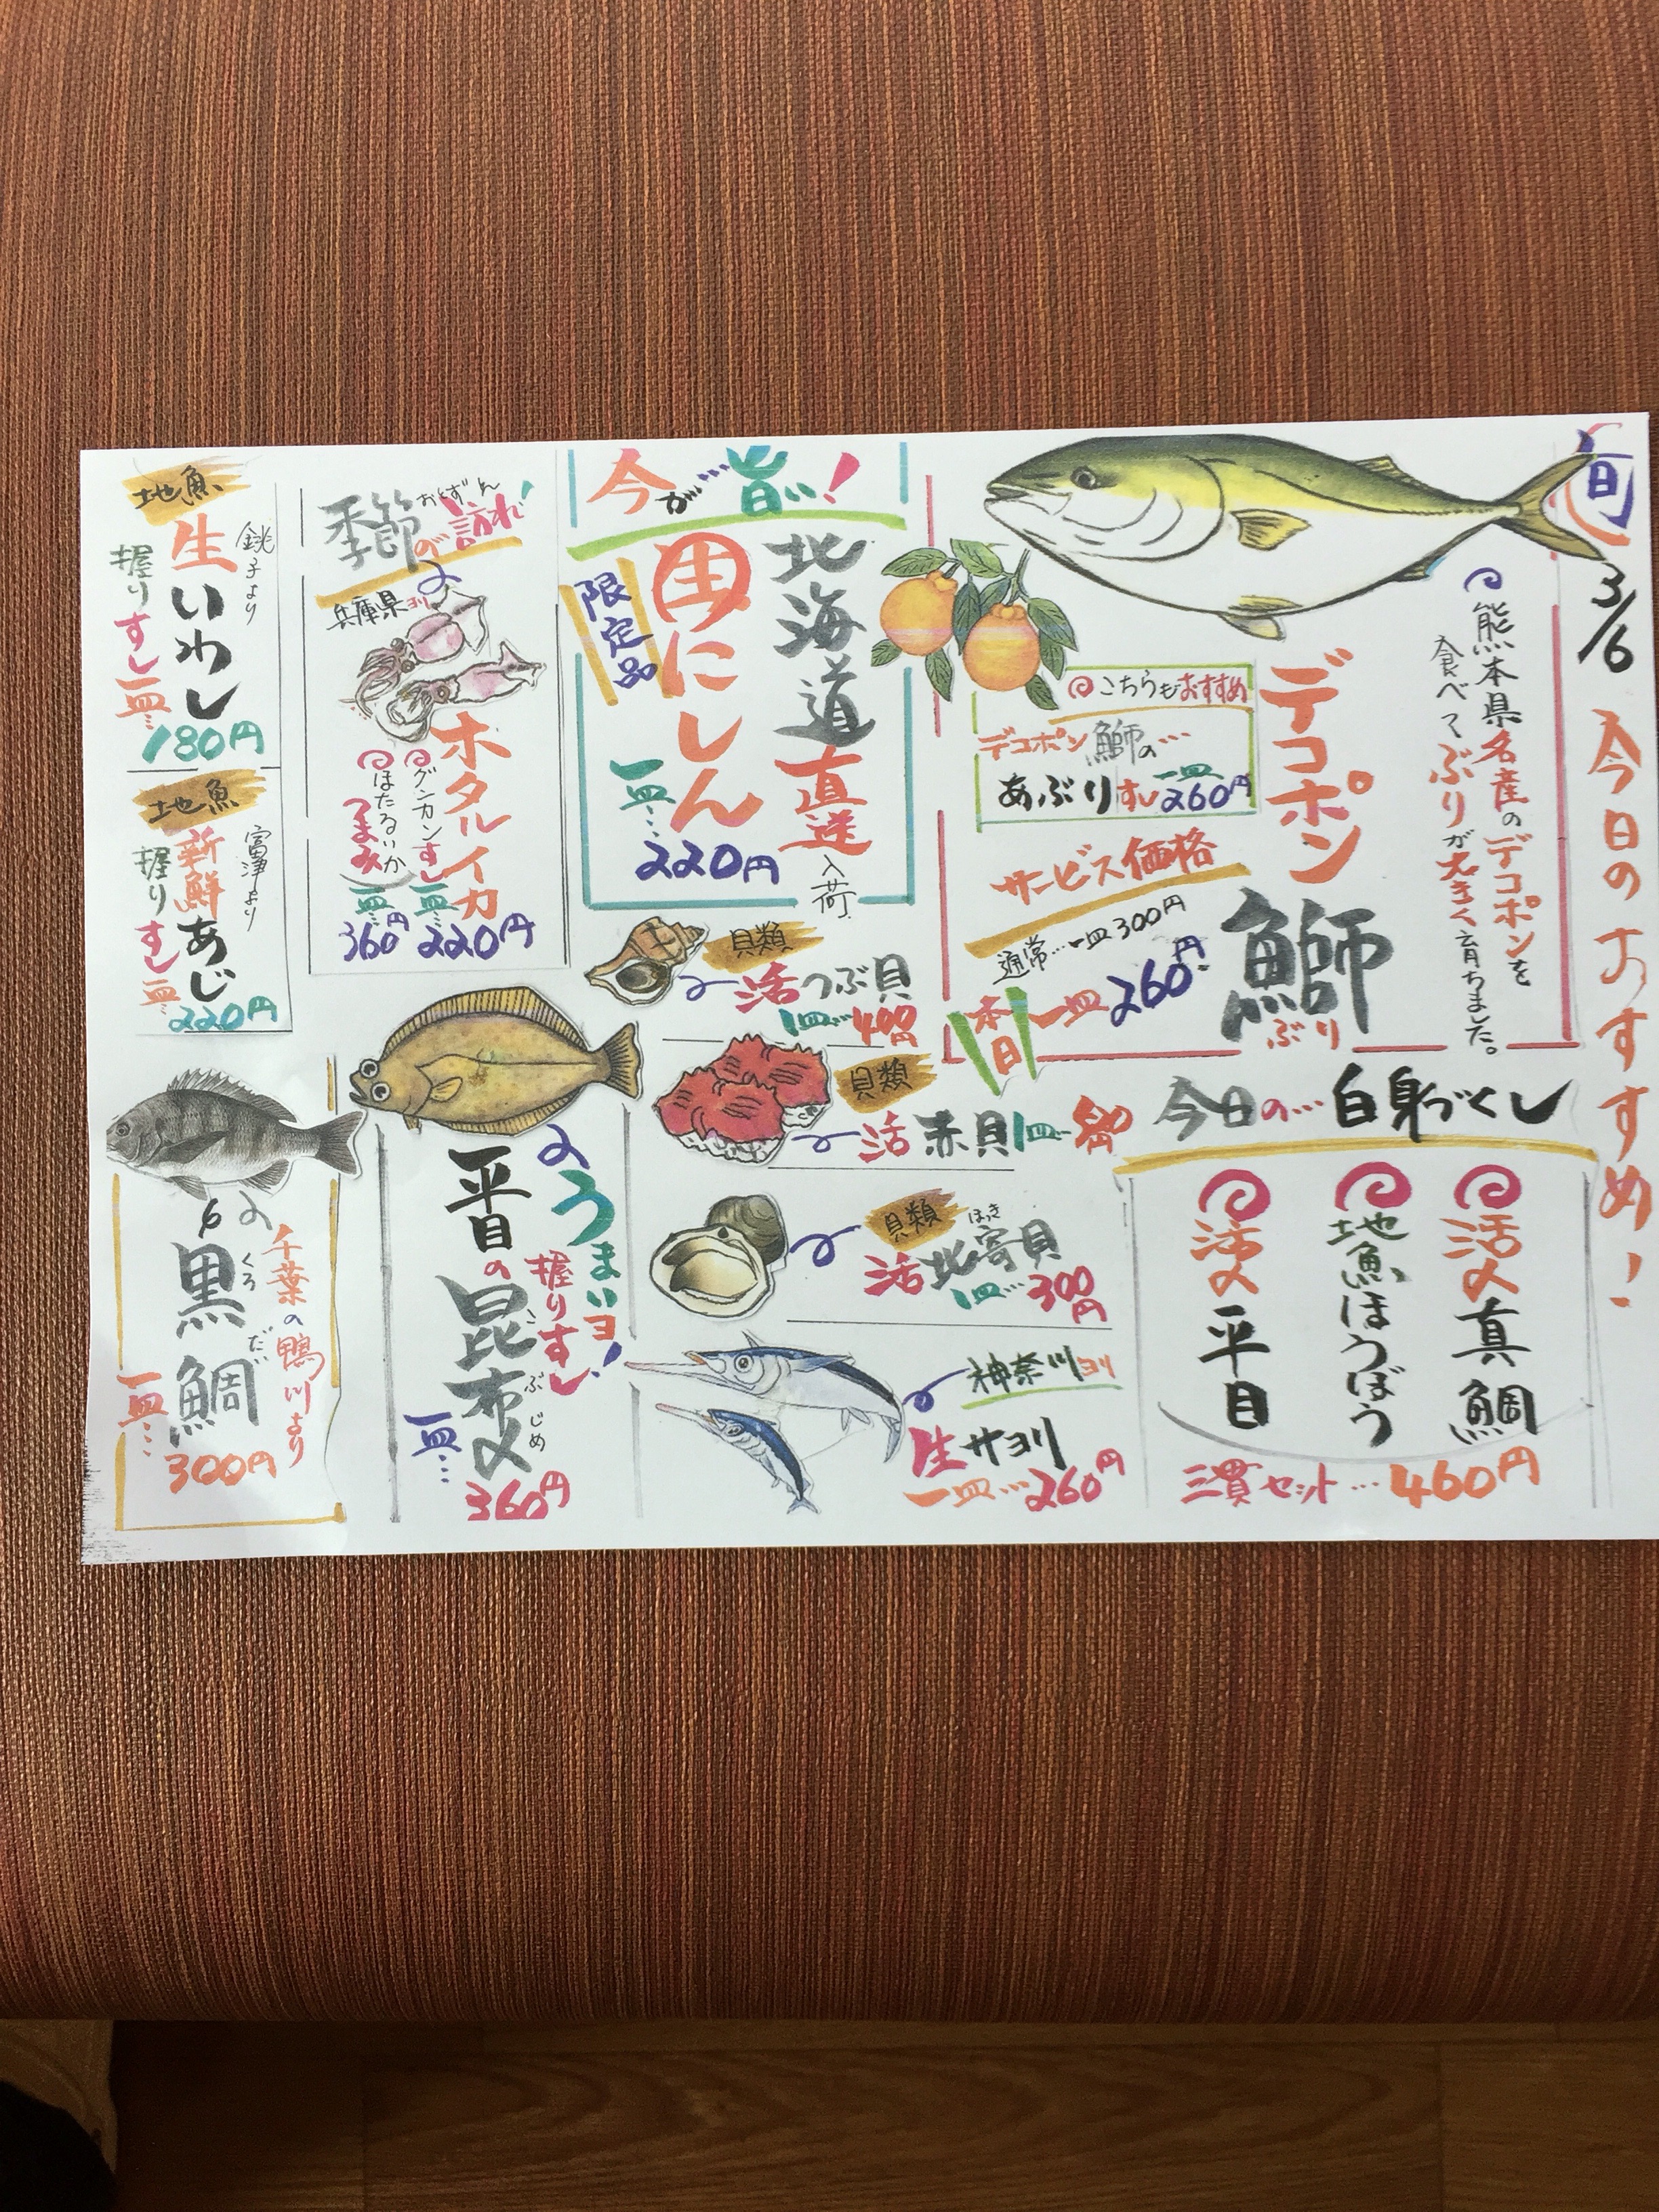 旬
3/6
今日のおすすめ!
熊本県名産のデコポンを
食べてぶりが大きく育ちました。
デコポン
鰤
ぶり
こちらもおすすめ
デコポン鰤の…
あぶりすし一皿260円
サービス価格
通常…一皿300円
本日
一皿260円
今日の…白身づくし
活〆真鯛
地魚ほうぼう
活〆平目
三貫セット…460円
今が…旨い!
北海道直送入荷
生にしん
限定品
一皿…
220円
貝類
活つぶ貝
1皿…400円
貝類
活赤貝1皿…
貝類
ほっき
活北寄貝
1皿…300円
神奈川ヨリ
生サヨリ
一皿…260円
おとずれ
季節の訪れ!
兵庫県ヨリ
ホタルイカ
グンカンすし
一皿…
220円
ほたるいか
つまみ
一皿…
360円
うまいヨ!
握りすし
平目の昆布〆
こぶじめ
一皿…
360円
地魚
銚子より
生いわし
握りすし一皿…
180円
地魚
富津より
新鮮あじ
握りすし一皿…
220円
千葉の鴨川より
黒鯛
くろだい
一皿…
300円